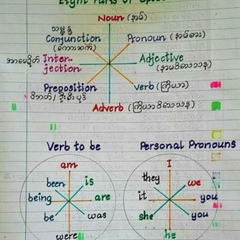 Eight Parts of Speech
Noun (နာမ်)
Conjunction
(စကားဆက်)
Pronoun (နာမ်စား)
Interjection
Adjective
(နာမဝိသေသန)
Preposition
Verb (ကြိယာ)
Adverb (ကြိယာဝိသေသန)
Verb to be
Personal Pronouns
am
is
are
was
were
be
being
been
I
we
you
you
he
she
it
they